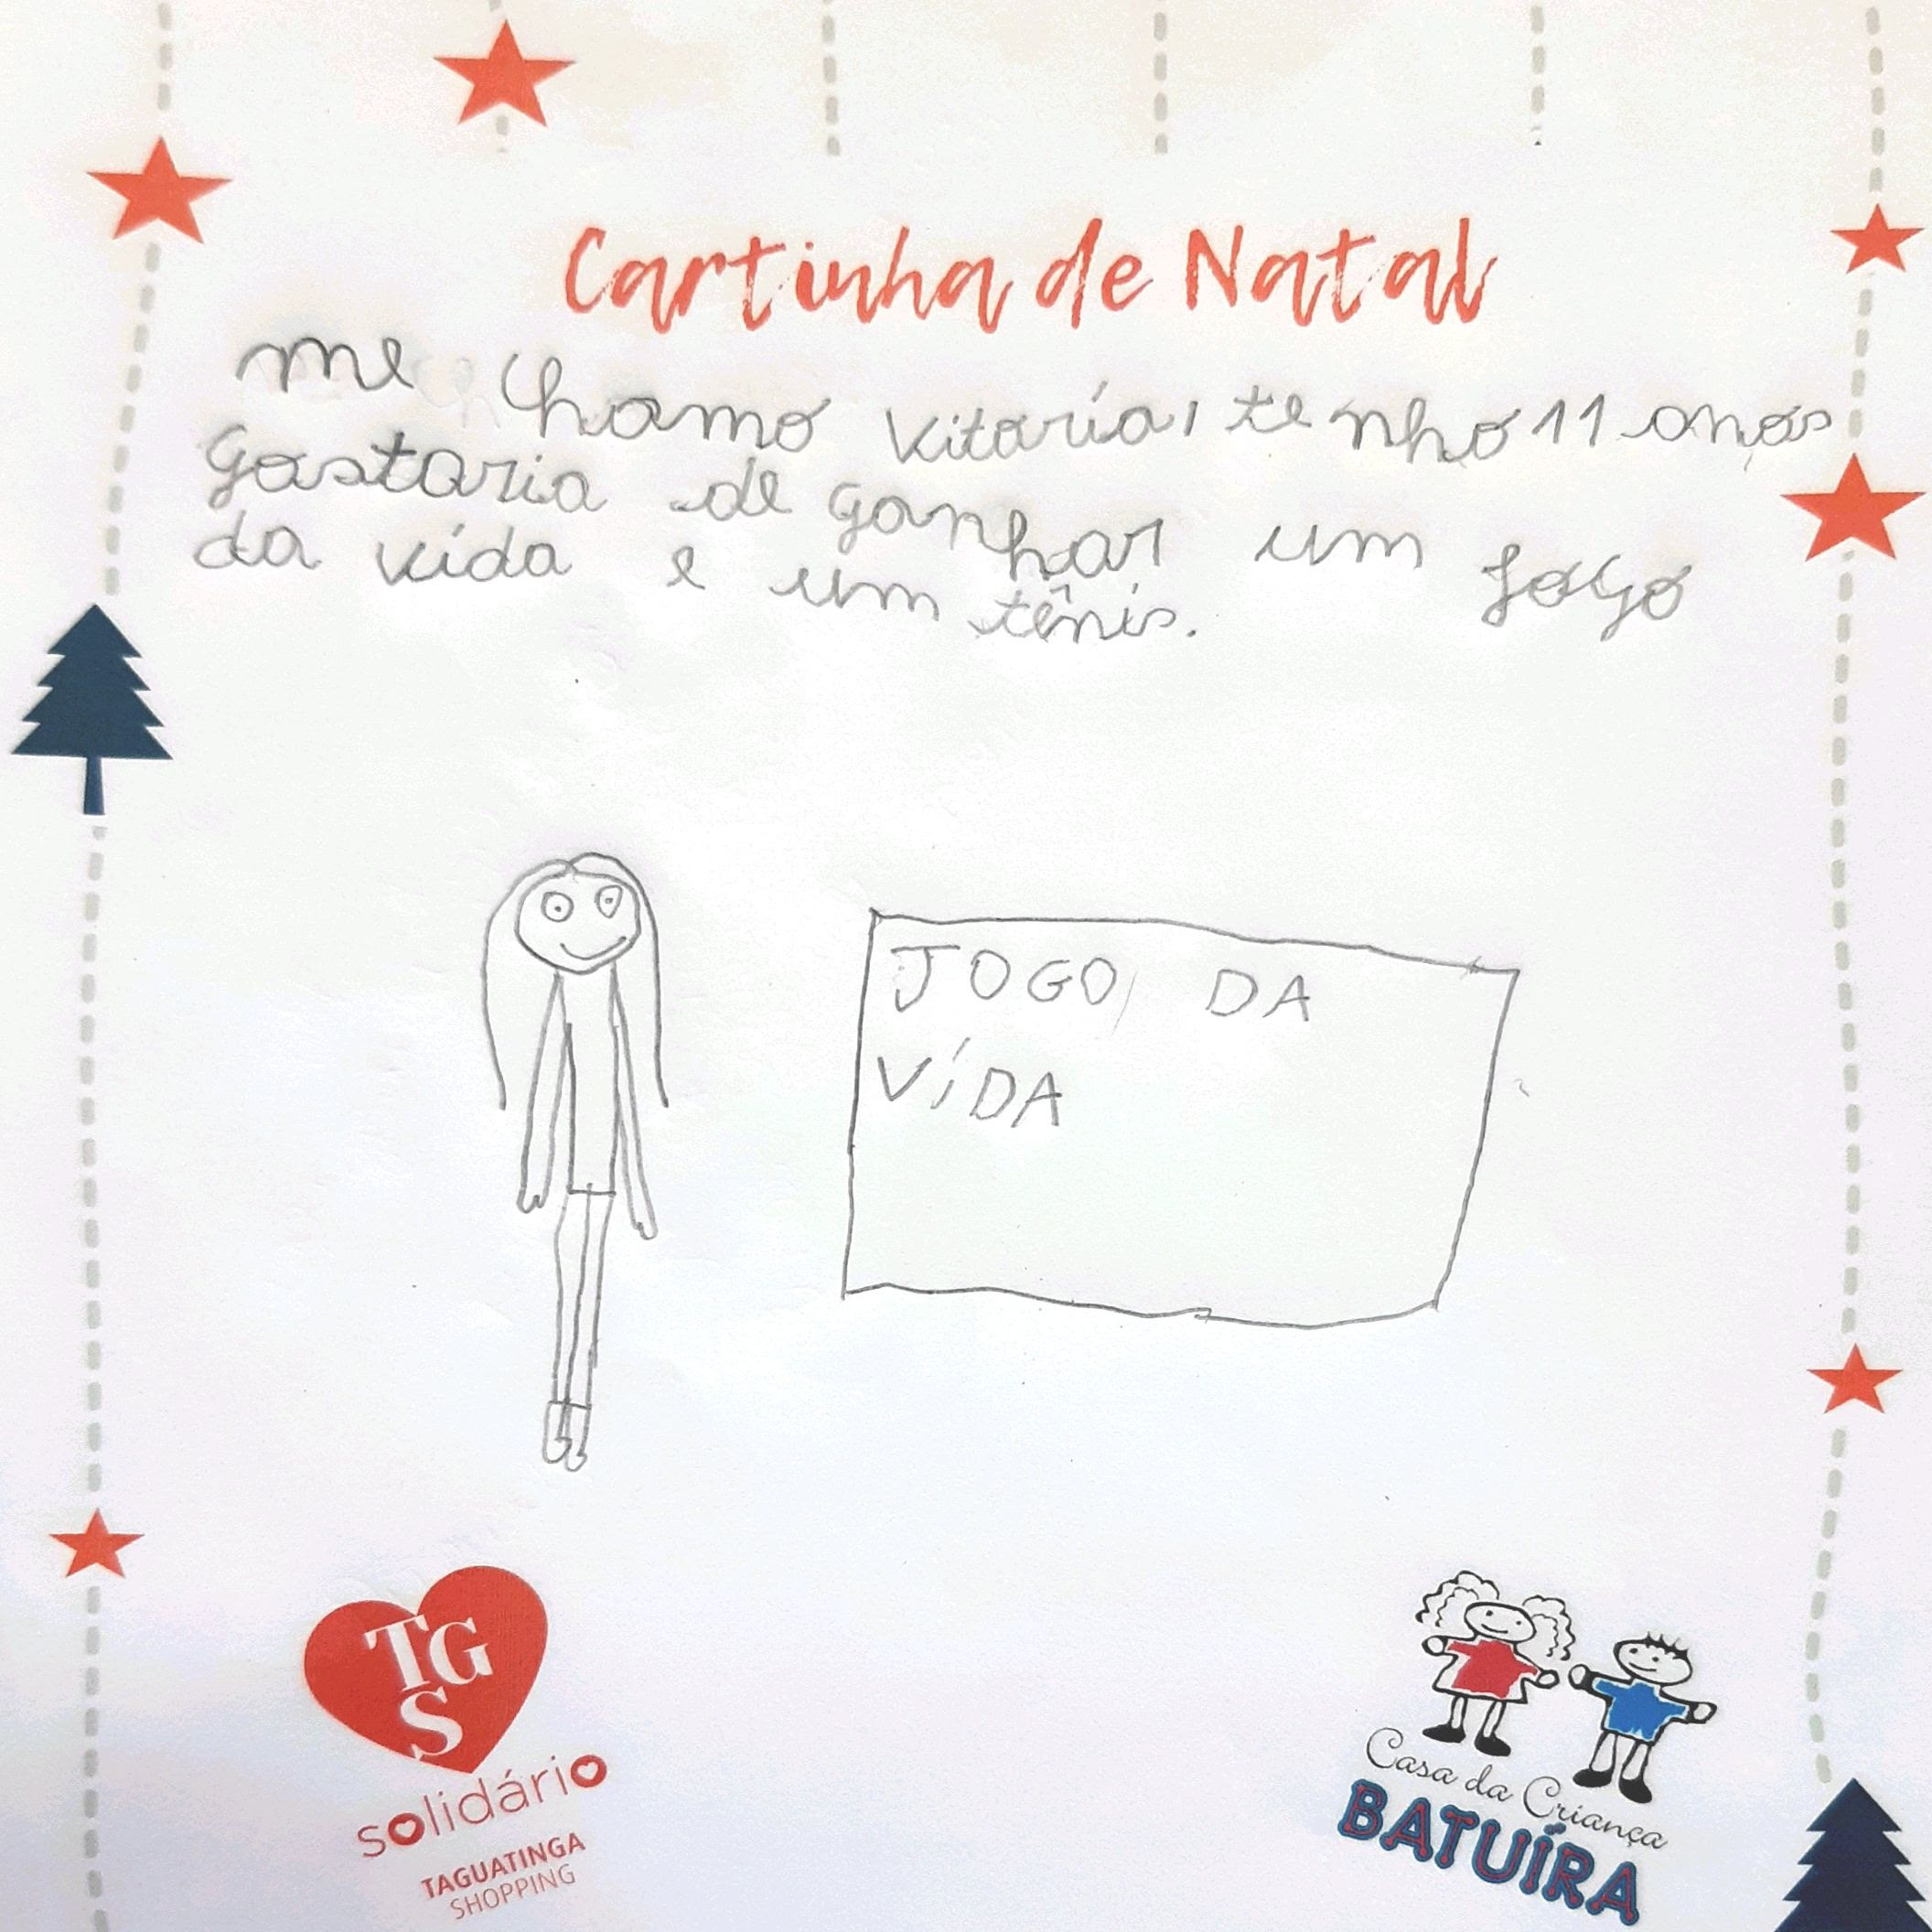 Cartinha de Natal
me chamo Vitaría, tenho 11 anos
gostaria de ganhar um jogo
da vída e um tênis.
JOGO DA
VÍDA
TGS
solidário
TAGUATINGA
SHOPPING
Casa da Criança
BATUÍRA